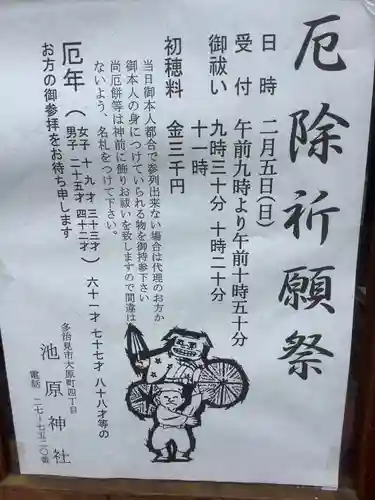 厄除祈願祭
日時 二月五日(日)
受付 午前九時より午前十時五十分
御祓い 九時三十分 十時二十分
十一時
初穂料 金三千円
当日御本人都合で参列出来ない場合は代理のお方か
御本人の身につけていられる物を御持参下さい
尚厄餅等は神前に飾りお祓いを致しますので間違は
ないよう、名札をつけて下さい。
厄年(女子 十九才 三十三才
男子 二十五才 四十二才)六十一才 七十七才 八十八才等の
お方の御参拝をお待ち申します
多治見市大原町四丁目
池原神社
電話 二七-七五二〇番